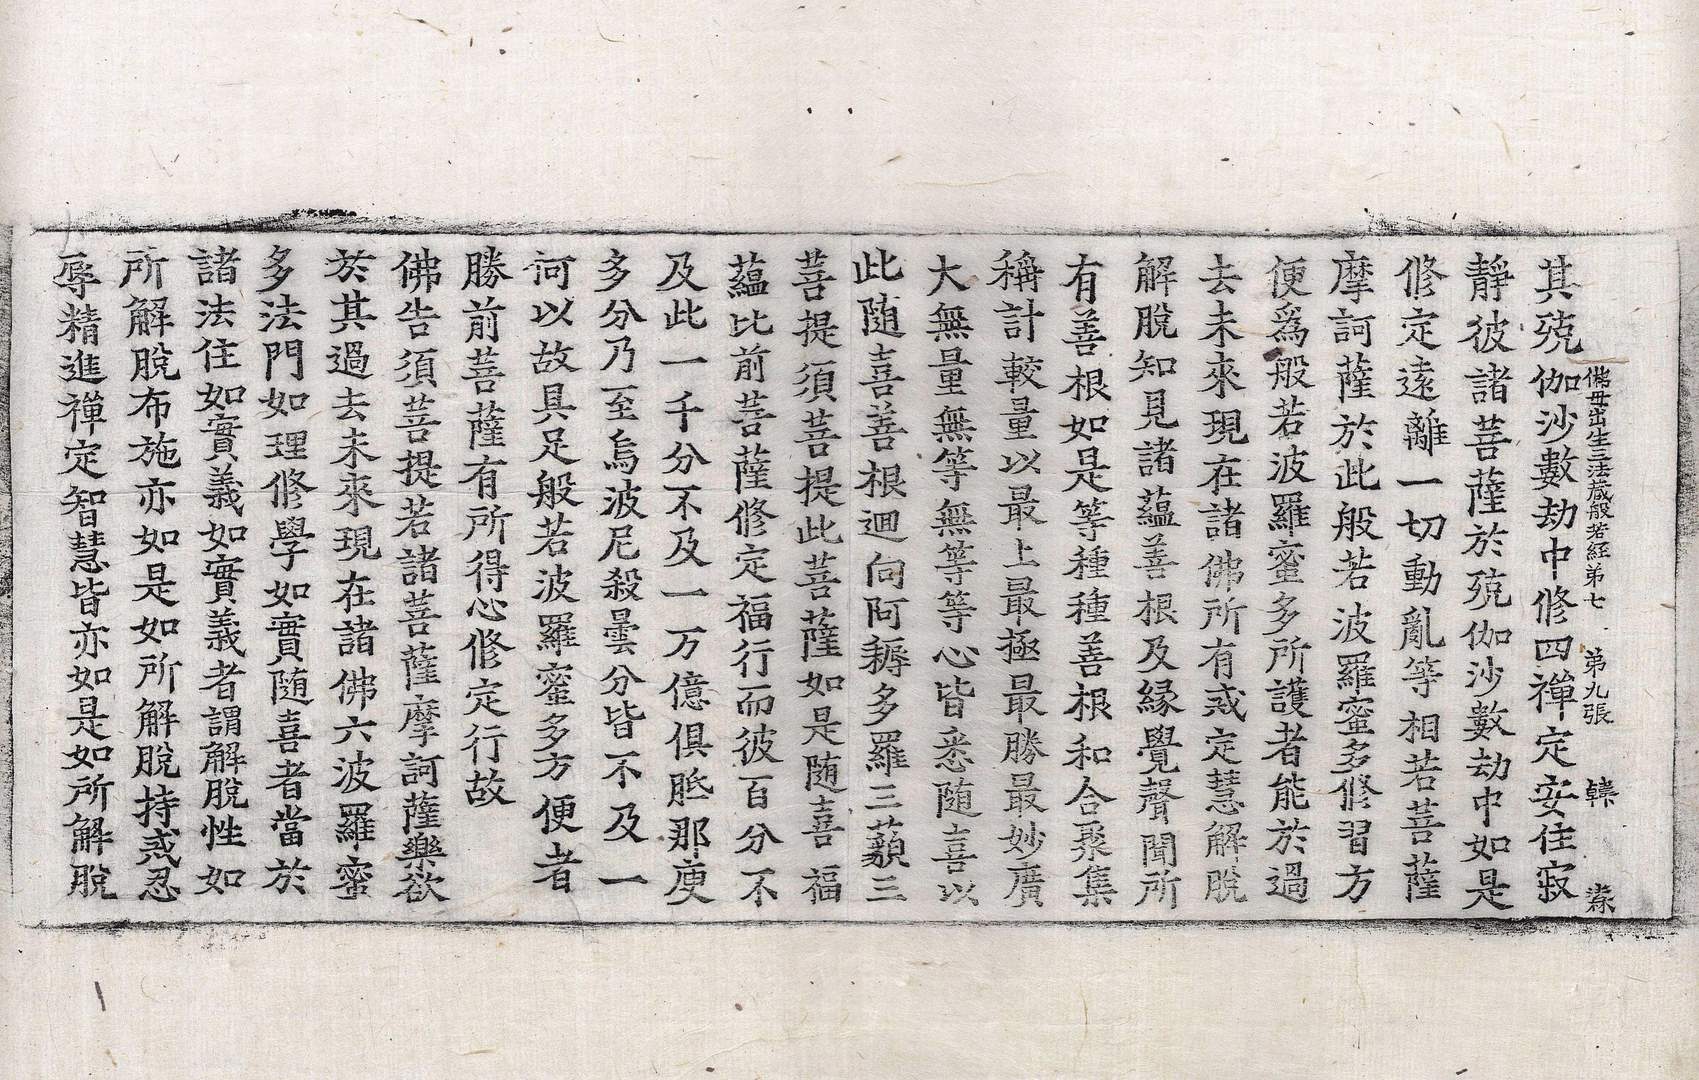 佛母出生三法藏般若經第七 第九張 韓
其殑伽沙數劫中修四禪定安住寂
靜彼諸菩薩於殑伽沙數劫中如是
修定遠離一切動亂等相若菩薩
摩訶薩於此般若波羅蜜多修習方
便爲般若波羅蜜多所護者能於過
去未來現在諸佛所有戒定慧解脫
解脫知見諸蘊善根及緣覺聲聞所
有善根如是等種種善根和合聚集
稱計較量以最上最極最勝最妙廣
大無量無等無等等心皆悉隨喜以
此隨喜善根迴向阿耨多羅三藐三
菩提須菩提此菩薩如是隨喜福
蘊比前菩薩修定福行而彼百分不
及此一千分不及一万億俱胝那庾
多分乃至烏波尼殺曇分皆不及一
何以故具足般若波羅蜜多方便者
勝前菩薩有所得心修定行故
佛告須菩提若諸菩薩摩訶薩樂欲
於其過去未來現在諸佛六波羅蜜
多法門如理修學如實隨喜者當於
諸法住如實義如實義者謂解脫性如
所解脫布施亦如是如所解脫持戒忍
辱精進禪定智慧皆亦如是如所解脫